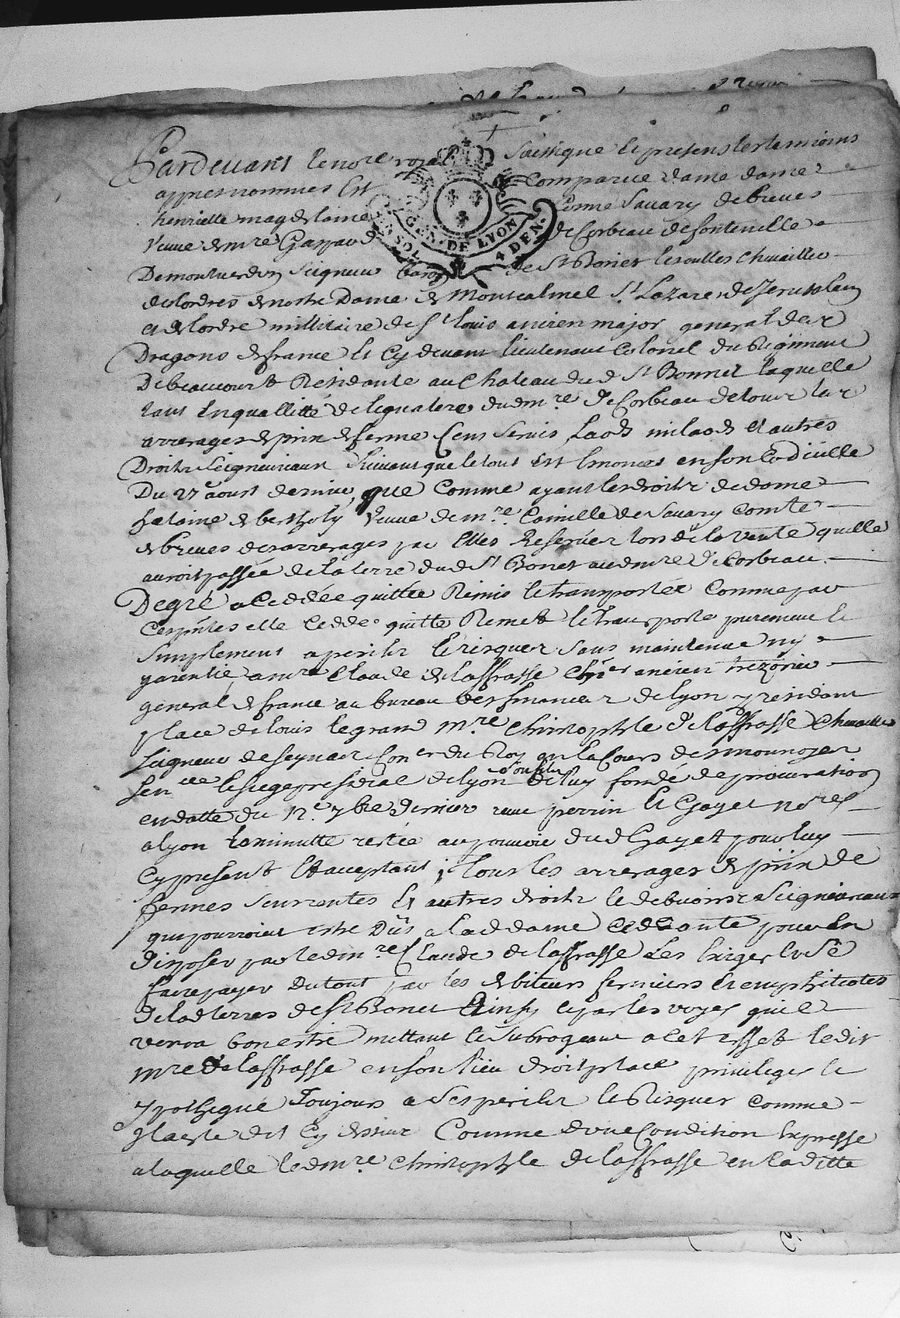 Pardevant le nore royal soussigne et presens les temoins
appres nommes est comparue dame dame
henriette magdelaine Savary de breves
veuve de mre Gaspard de Corbeau de fontenelle
GEN. DE LYON
UN SOL 4 DEN.
Demontverdun Seigneur baron de St Bonet les oulles Chevallier
des ordres de nostre Dame de Montcalmel St Lazare de Jerusalem
et de lordre millitaire de St louis ancien major general de
Dragons de france et Cy devant lieutenant Colonel du Regiment
De beaucourt Residante au Chateau dud St Bonnet laquelle
tant en quallitté de legatere dud mre De Corbeau de tour les
arrerages de prix de ferme Cens servis Laods milaods et autres
Droits Seigneuriaux suivant que le tout est enonces en son Codicille
Du 27 aoust dernier, que comme ayant les droits de dame
helaine de bertholy veuve de mre Camille de Savary Comte
de breves des arrerages par elles Reserver lors de la vente quelle
auroit passée de la terre dud St Bonet aud mre De Corbeau
Degré a Ceddée quittée Remis et transportée comme par
Cespntes elle Cedde quitte Remet et transporte purement et
simplement a perils et risques sans maintenue ny
garentie, a mre Claude de laffrasse Chier ancien trezorier
general de france au bureau des finances de lyon y residant
place de louis le grand mre Christophle De laffrasse Chevallier
Seigneur de Seynas Coner du Roy en la Cour des monnoyes
Sencée et siege presidial de lyon de luy fondé de procuration
en datte du 12e 7bre dernier reçue perrin et Gayet nores
a lyon la minutte restée au pouvoir dud Gayet pour luy
Cy present et acceptant, tous les arrerages de prix de
fermes servis rentes et autres droits et debvoirs Seigneuriaux
qui pourroient estre dus a lad dame Ceddante pour en
Disposer par led mre Claude de laffrasse Les Exiger et se
faire payer du tout par les debiteurs fermiers et emphiteotes
De lad terres de St Bonet Ainsy et par les voyes quil
verra bon estre mettant et subrogeant a cet effet ledit
mre de laffrasse en son lieu droit place privileges et
ypotheque Toujours a ses perils et Risques comme
Il a esté dit Cy dessus Comme dune Condition Expresse
a laquelle led mre Christophle de laffrasse en la ditte